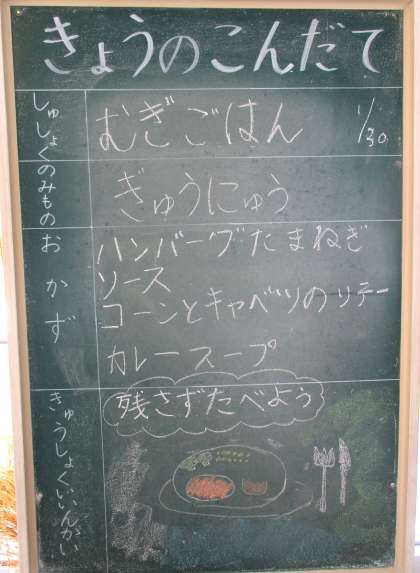 きょうのこんだて
しゅしょく
むぎごはん
1/30
のみもの
ぎゅうにゅう
おかず
ハンバーグたまねぎ
ソース
コーンとキャベツのソテー
カレースープ
きゅうしょくいいんかい
残さずたべよう